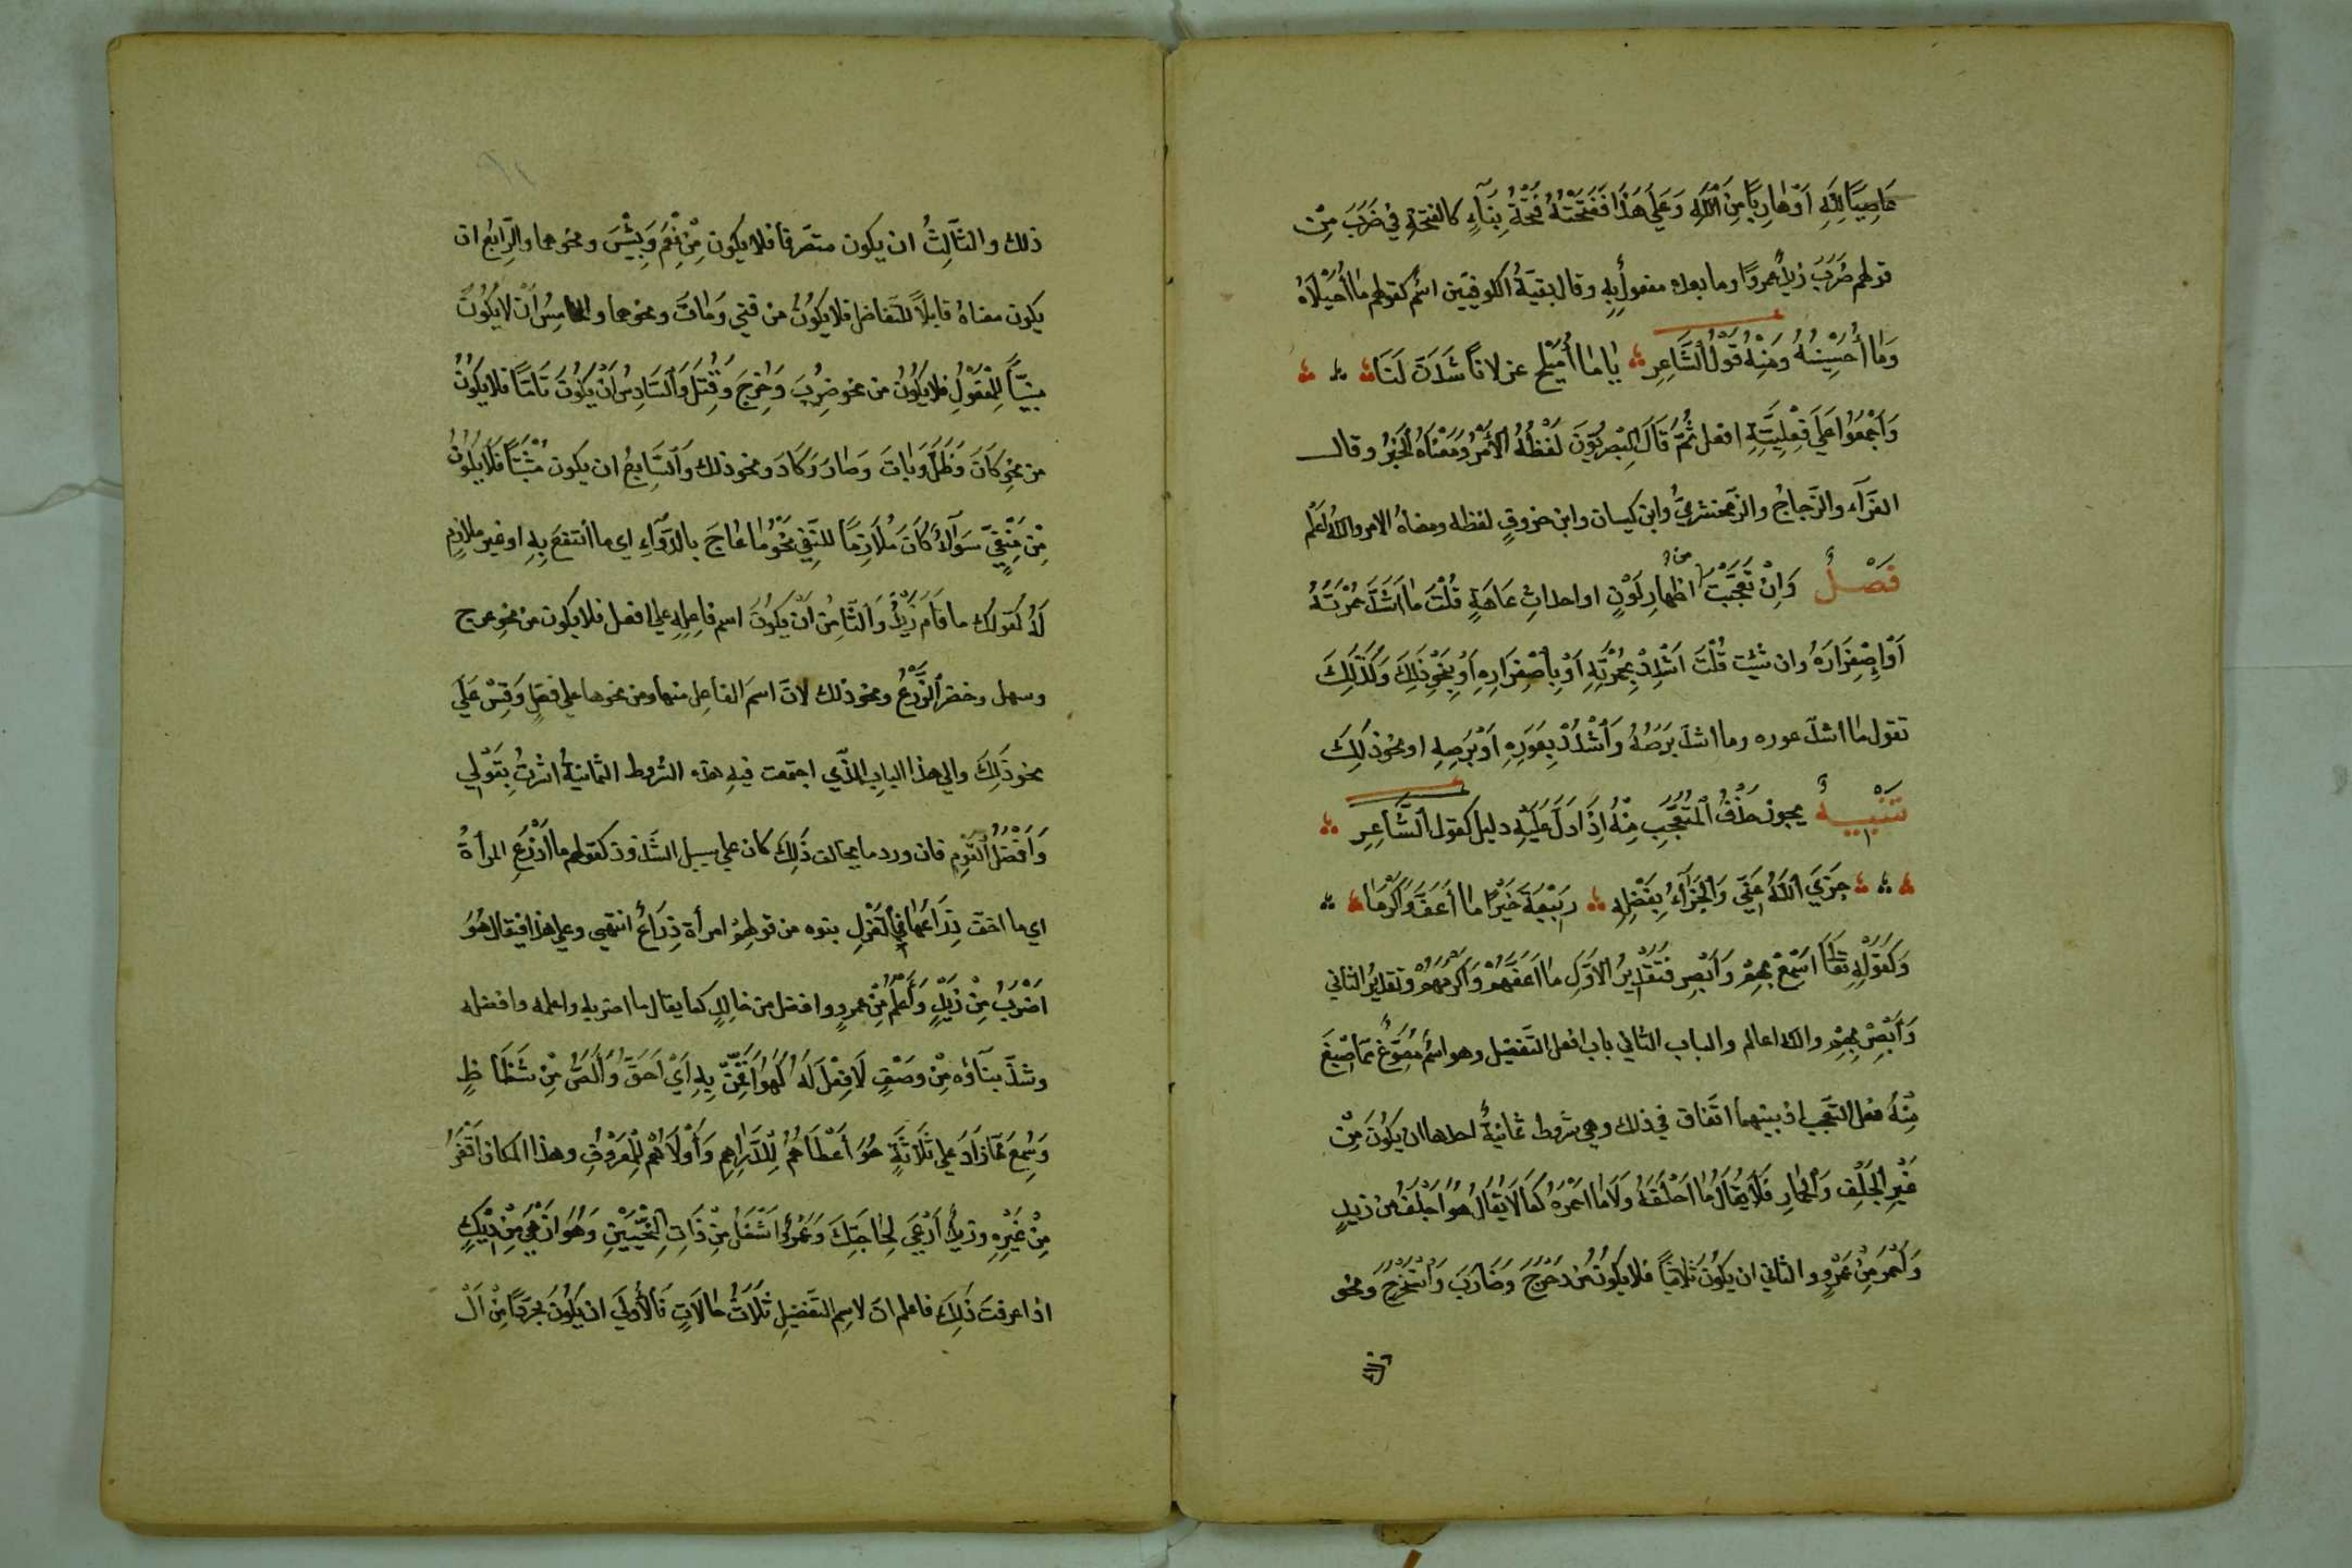 عَاصِيًا لِلّٰهِ اَوْ هَارِبًا مِنَ اللّٰهِ وَعَلَى هَذَا فَفَتْحَتُهُ فَتْحَةُ بِنَآءٍ كالفتحةِ فِي ضَرَبَ مِنْ
قولهم ضَرَبَ زيدٌ عمروًا وما بعده مفعولٌ بِهِ وقال بقيّةُ الكوفيّين اسْمٌ كقولهم مَا أُحَيْلَاهُ
وَمَا أُحَيْسِنُهُ وَمِنْهُ قَوْلُ الشَّاعِرِ يَا مَا أُمَيْلِحَ غزلانًا شَدَنَّ لَنَا
وَاَجْمَعُوا عَلَى فِعْلِيَّتِهِ افعل ثُمَّ قَالَ الْبَصْرِيُّونَ لَفْظُهُ الْأَمْرُ وَمَعْنَاهُ الْخَبَرُ وقال
الفَرَّآء والزَّجاجُ والزّمخشرىُّ وابن كيسان وابن خروفٍ لفظه ومعناهُ الامر والله اَعْلَم
فَصْلٌ وَاِنْ تَعَجَّبْتَ من اظهارِ لَوْنٍ او احداثِ عَاهَةٍ قُلْتَ مَا اَشَدَّ حُمْرَتَهُ
اَوْ اِصْفِرَارَهُ وان شئت قُلْتَ اَشْدِدْ بِحُمْرَتِهِ اَوْ بِاصْفِرَارِهِ اَوْ بِنَحْوِ ذَلِكَ وَكَذَلِكَ
تقول مَا اشدّ عوره وما اشدّ بَرَصَهُ وَاَشْدُدْ بِعَوَرِهِ اَوْ بَرَصِهِ او نحوِ ذَلِكَ
تَنْبِيهٌ يجوز حَذْفُ الْمُتَعَجَّبِ مِنْهُ اِذَا دَلَّ عَلَيْهِ دليل كقول الشَّاعِرِ
جَزَى اللّٰهُ عَنِّي وَالْجَزَآءُ بِفَضْلِهِ رَبِيْعَةَ خَيْرًا مَا أَعَفَّ وَاَكْرَمَا
وَكَقَوْلِهِ تَعَالَى اَسْمِعْ بِهِمْ وَاَبْصِرْ فَتَقْدِيرُ الأوّلِ مَا اَعَفَّهُمْ وَاَكْرَمَهُمْ وتقديرُ الثاني
وَأَبْصِرْ بِهِمْ والله اعالم والباب الثاني باب افعل التّفضيل وهو اسْمٌ مَصُوغٌ مِمَّا صِيغَ
مِنْهُ فعل التعجب اذ بينهما اتّفاق في ذلك وهي شروط ثمانيةٌ احدها ان يَكُونَ مِنْ
غَيْرِ الْجَلِفِ وَالْحِمَارِ فَلَا يُقَالُ مَا اَجْلَفَهُ وَلَا مَا احمَرَهُ كَمَا لَا يُقَالُ هُوَ اَجْلَفُ مِنْ زيدٍ
وَاَحْمَرَ مِنْ عَمْرٍو والثاني ان يَكُونَ ثُلَاثِيًّا فلا يَكُونُ مِنْ دَحْرَجَ وَضَارَبَ وَاسْتَخْرَجَ وَنحو
ذلك
ذلك والثَّالِثُ ان يكون متصّرفا فلا يكون مِنْ نِعْمَ وَبِئْسَ ونحوهما والرّابعُ ان
يكون معناهُ قابلاً للتّفاضل فلا يَكُونُ من فَنِيَ وَمَاتَ ونحوهما والخامِسُ اَنْ لا يَكُونَ
مبنيّاً لِلْمَفْعُولِ فلا يَكُونُ من نحو ضُرِبَ وَخُرِجَ وَقُتِلَ وَالسَّادِسُ اَنْ يَكُونَ تَامًّا فلا يَكُونُ
من نَحْوِ كَانَ وَظَلَّ وَبَاتَ وَصَارَ وَكَادَ ونحو ذلك وَالسَّابِعُ ان يكون مُثْبَتًا فَلَا يَكُونُ
مِنْ مَنْفِيٍّ سَوَآءٌ كَانَ مُلَازِمًا للنَّفِي نَحْوُ مَا عَاجَ بالدَّوَآءِ اى ما انْتَفَعَ بِهِ او غير ملازمٍ
لَهُ كقولك ما قَامَ زَيْدٌ وَالثَّامِنُ اَنْ يَكُونَ اسم فاعِلِهِ على افعل فلا يكون من نحوِ عرج
وسهل وخضر الزَّرْعُ ونحو ذلك لانّ اسمَ الفاعِل منها ومن نحوها على افعل وَقِسْ عَلَى
نحو ذَلِكَ والى هذا الباب الّذى اجتمعت فيه هذه الشروط الثمانية اشرتُ بِقَوْلِي
وَاَفْضَلُ الْقَوْمِ فان ورد ما يخالف ذَلِكَ كان على سبيل الشّذوذ كقولهم مَا اَذْرَعَ المرأةَ
اى ما اخفّ ذِرَاعَهَا فِي الْغَزْلِ بنوه من قولهِمْ امرأة ذِرَاعٌ انتهى وعلى هذا فيقال هُوَ
اَضْرَبُ مِنْ زَيْدٍ وَاَعْلَمُ مِنْ عمرٍو وافضل من خالِدٍ كما يقال ما اضربه واعلمه وافضله
وشذّ بنآؤه مِنْ وَصْفٍ لَا فِعْلَ لَهُ كَهُوَ اَقْمَنُ بِهِ اَيْ اَحَقُّ وَأَلَصُّ مِنْ شَظَاظٍ
وَسُمِعَ مِمَّا زَادَ عَلَى ثَلَاثَةٍ هُوَ اَعْطَاهُمْ لِلدَّرَاهِمِ وَأَوْلَاهُمْ لِلْمَعْرُوفِ وهذا المكان اَقْفَرُ
مِنْ غَيْرِهِ وزيدٌ اَرْعَى لِحَاجَتِكَ وَعَمْرٌو اَشْغَلُ مِنْ ذَاتِ النِّحْيَيْنِ وَهُوَ اَزْهَى مِنْ دِيْكٍ
اذا عرفتَ ذَلِكَ فاعلم انّ لاسِمِ التّفضيلِ ثَلَاثُ حَالَاتٍ فَالْأُولَى ان يَكُونَ مجرَّدًا مِنْ اَلْ